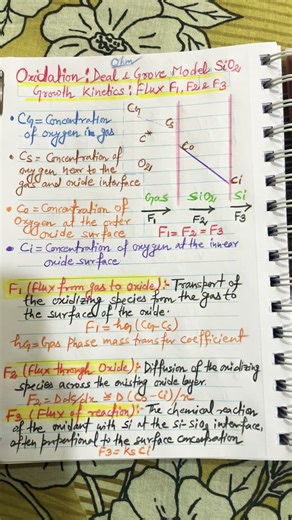 Ohm
Oxidation: Deal & Grove Model SiO2
Growth Kinetics: Flux F1, F2 & F3
• CG = Concentration
of oxygen in gas
• Cs = Concentration of
oxygen near to the
gas and oxide interface
• Co = Concentration of
oxygen at the outer
oxide surface
• Ci = Concentration of oxygen at the innear
oxide surface
CG
Cs
C*
Co
O2
Ci
Gas SiO2 Si
F1 F2 F3
F1 = F2 = F3
F1 (Flux from gas to oxide):- Transport of
the oxidizing species from the gas to
the surface of the oxide.
F1 = hG (CG - Cs)
hG = Gas phase mass transfer coefficient
F2 (Flux through Oxide):- Diffusion of the oxidizing
species across the existing oxide layer.
F2 = D dc/dx ≅ D (Co - Ci)/x
F3 (Flux of reaction):- The chemical reaction
of the oxidant with Si at the Si-SiO2 interface,
often proportional to the surface concentration
F3 = Ks Ci